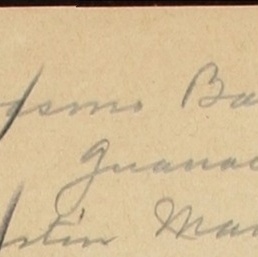 osmo Ba
Guanac
stin Ma